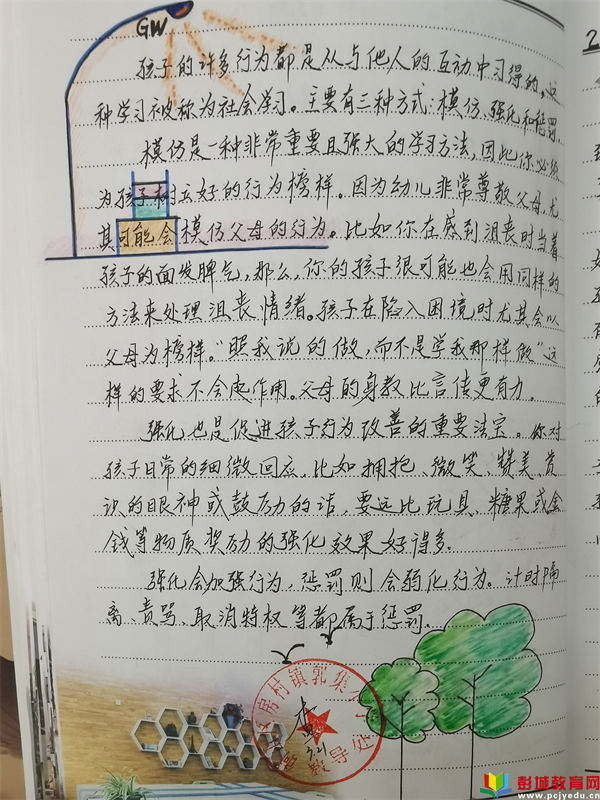 GW
孩子的许多行为都是从与他人的互动中习得的,这
种学习被称为社会学习。主要有三种方式:模仿、强化和惩罚.
模仿是一种非常重要且强大的学习方法,因此你必须
为孩子树立好的行为榜样。因为幼儿非常尊敬父母,尤
其可能会模仿父母的行为。比如你在感到沮丧时当着
孩子的面发脾气,那么,你的孩子很可能也会用同样的
方法来处理沮丧情绪。孩子在陷入困境时尤其会以
父母为榜样。“照我说的做,而不是学我那样做”这
样的要求不会起作用。父母的身教比言传更有力.
强化也是促进孩子行为改善的重要法宝。你对
孩子日常的细微回应,比如拥抱、微笑、赞美、赏
识的眼神或鼓励的话,要远比玩具、糖果或金
钱等物质奖励的强化效果好得多.
强化会加强行为,惩罚则会弱化行为。计时隔
离、责骂、取消特权等都属于惩罚.
村镇郭集
导处
彭城教育网
www.pcjyedu.cn
2